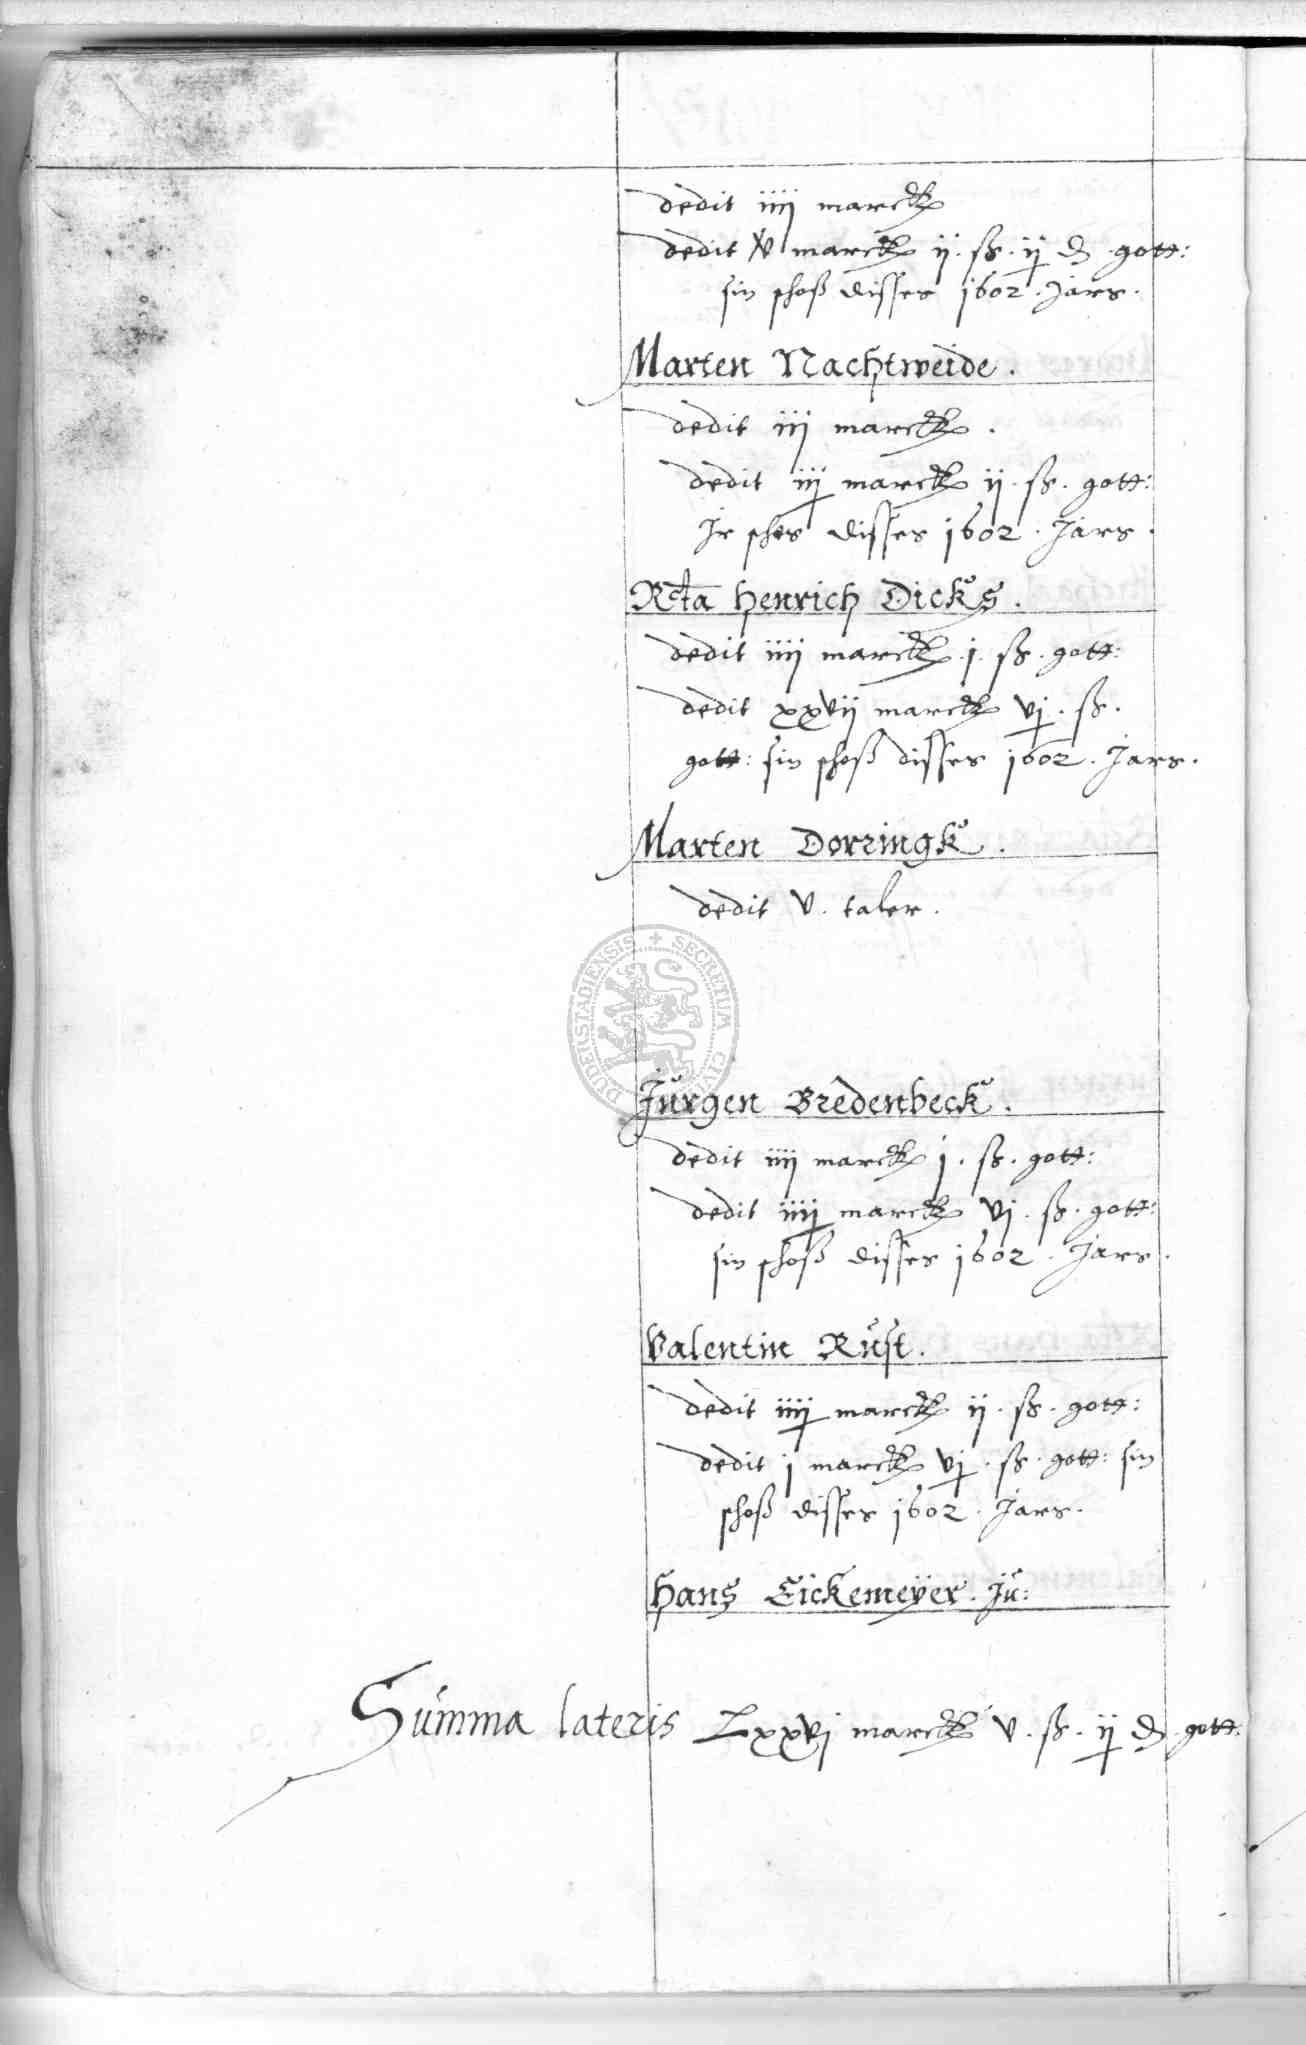 dedit iiij marck
dedit v marck ij. ß. ij d gott:
sin schoß disses 1602. Jars.
Marten Nachtweide.
dedit iij marck.
dedit iij marck ij. ß. gott:
Jr schos disses 1602. Jars.
Rcta Henrich Dicks.
dedit iiij marck. j. ß. gott:
dedit xxvij marck vj. ß.
gott: sin schoß disses 1602. Jars.
Marten Dorringk.
dedit v. taler.
DUDERSTADIENSIS + SECRETUM CIVI
Jurgen Bredenbeck.
dedit iiij marck j. ß. gott:
dedit iiij marck vj. ß. gott:
sin schoß disses 1602. Jars.
Valentin Rust.
dedit iiij marck ij. ß. gott:
dedit j marck vj. ß. gott: sin
schoß disses 1602. Jars.
Hans Eickemeÿer. Ju:
Summa lateris Lxxvj marck v. ß. ij d gott: